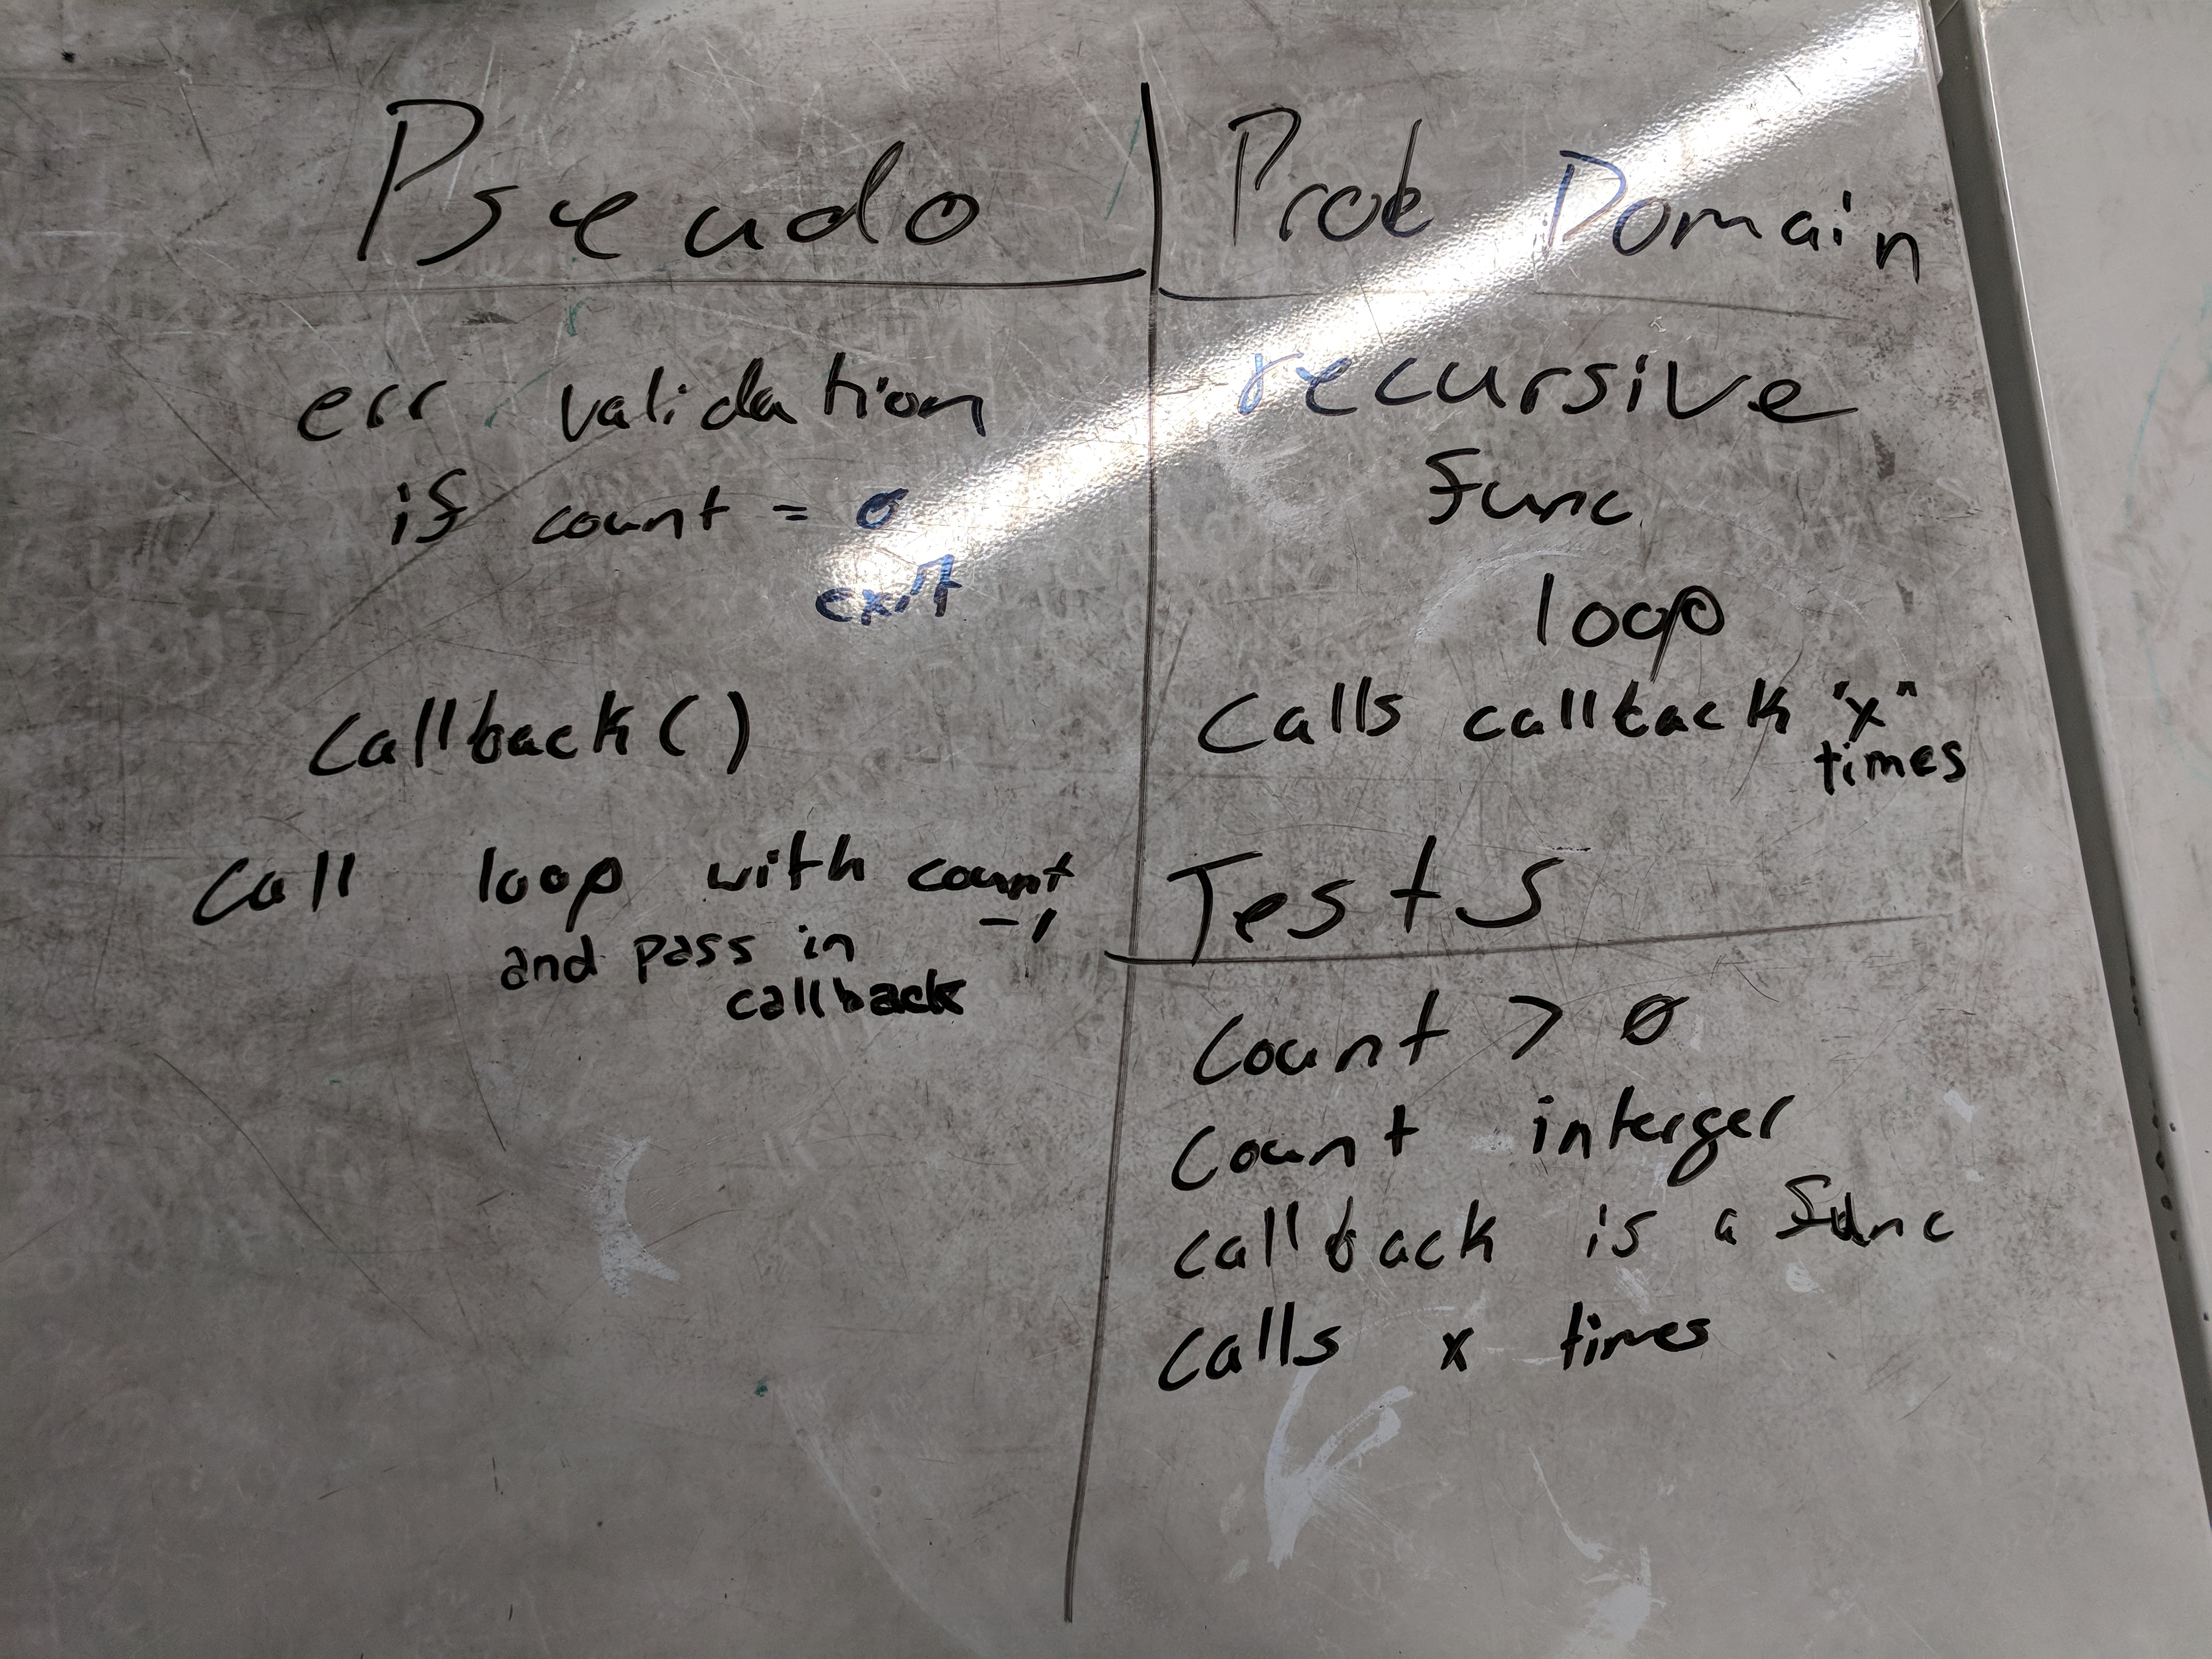 Pseudo
err validation
if count = 0
exit
Callback()
Call loop with count
-1
and pass in
callback
Prob Domain
recursive
func
loop
Calls callback "x"
times
Tests
Count > 0
Count interger
callback is a func
calls x times